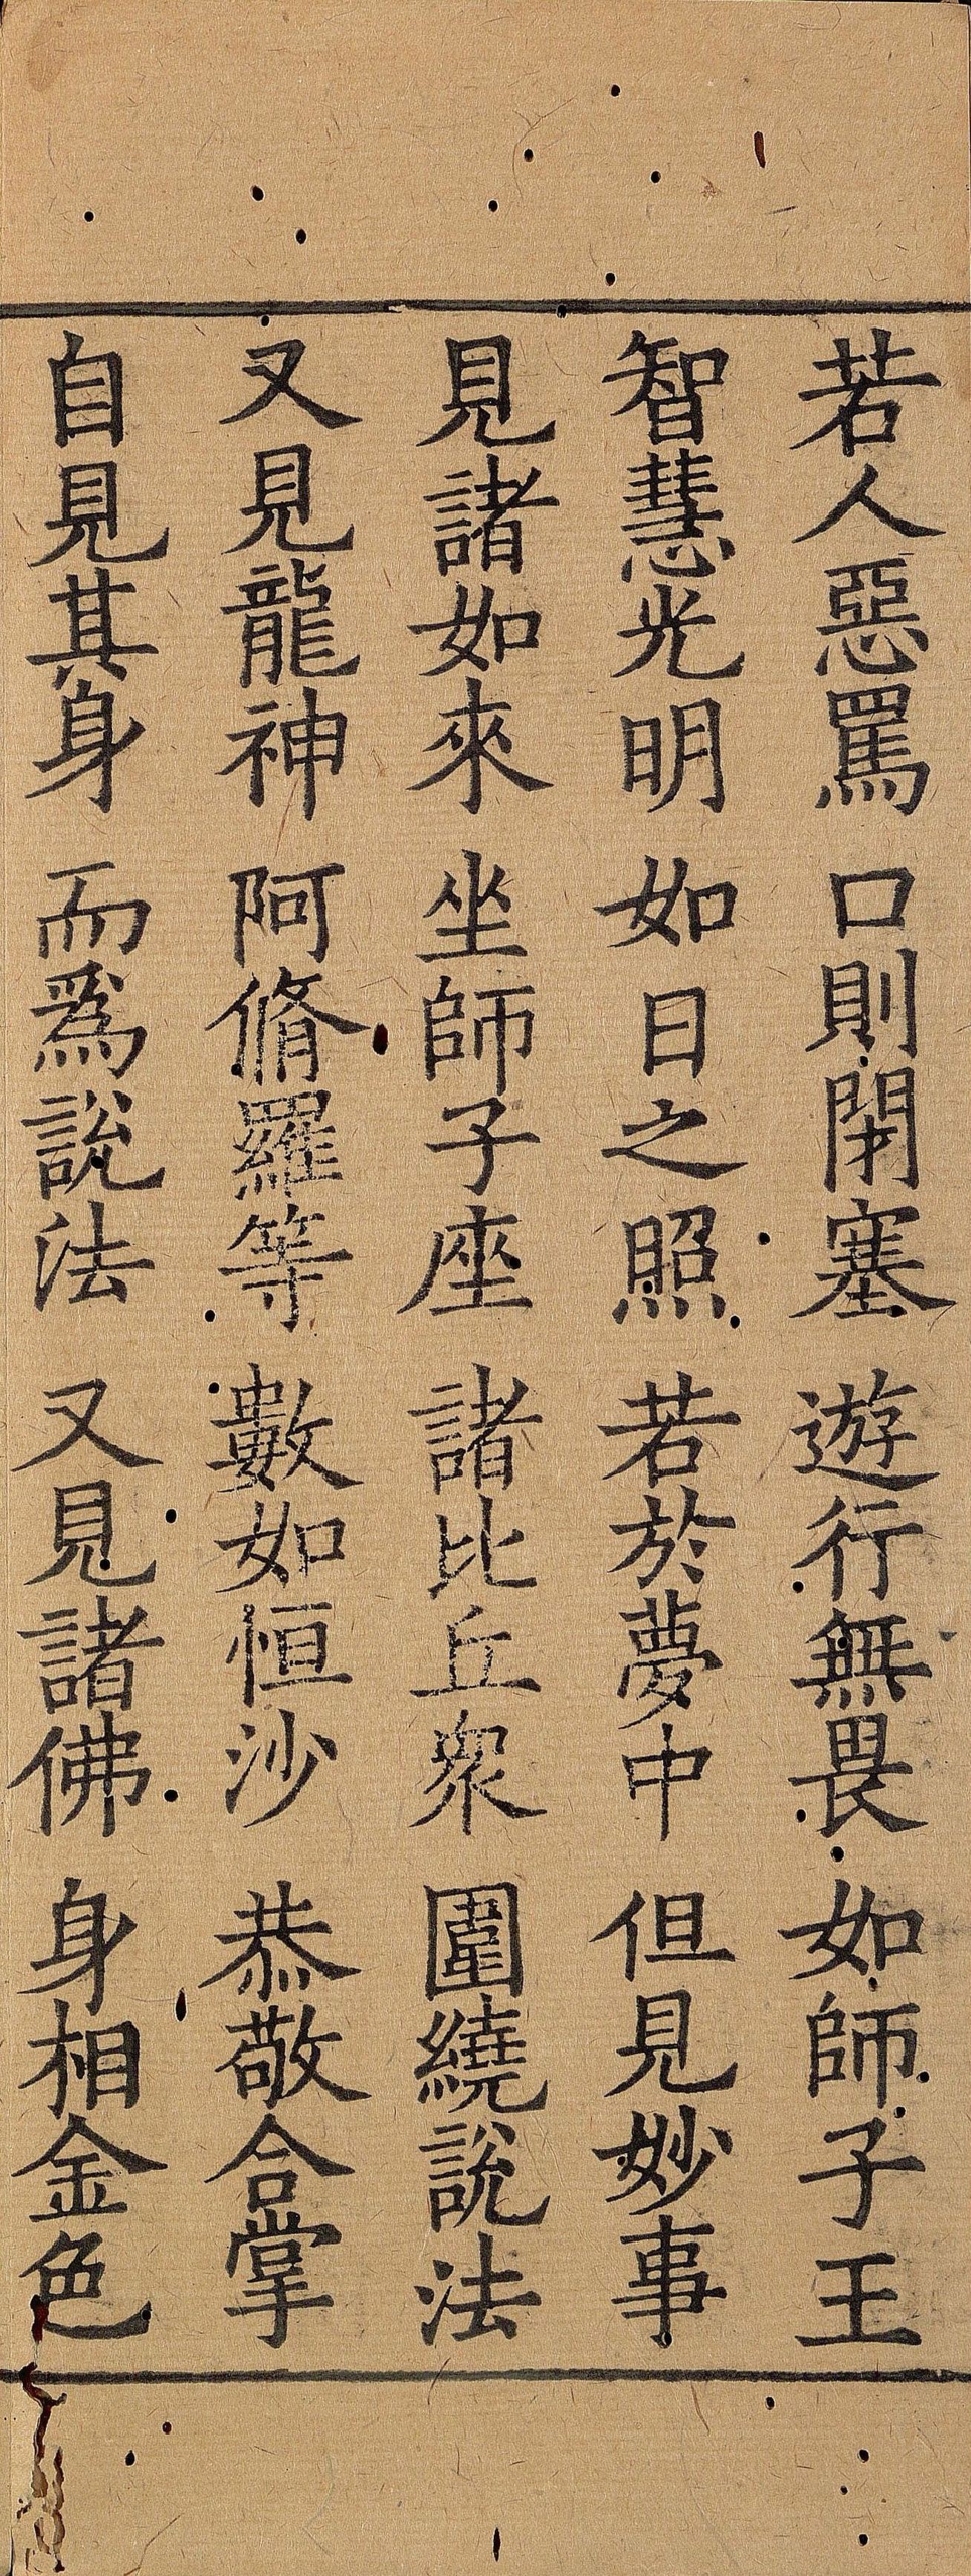 若人惡罵　口則閇塞　遊行無畏　如師子王
智慧光明　如日之照　若於夢中　但見妙事
見諸如來　坐師子座　諸比丘衆　圍繞說法
又見龍神　阿脩羅等　數如恒沙　恭敬合掌
自見其身　而爲說法　又見諸佛　身相金色